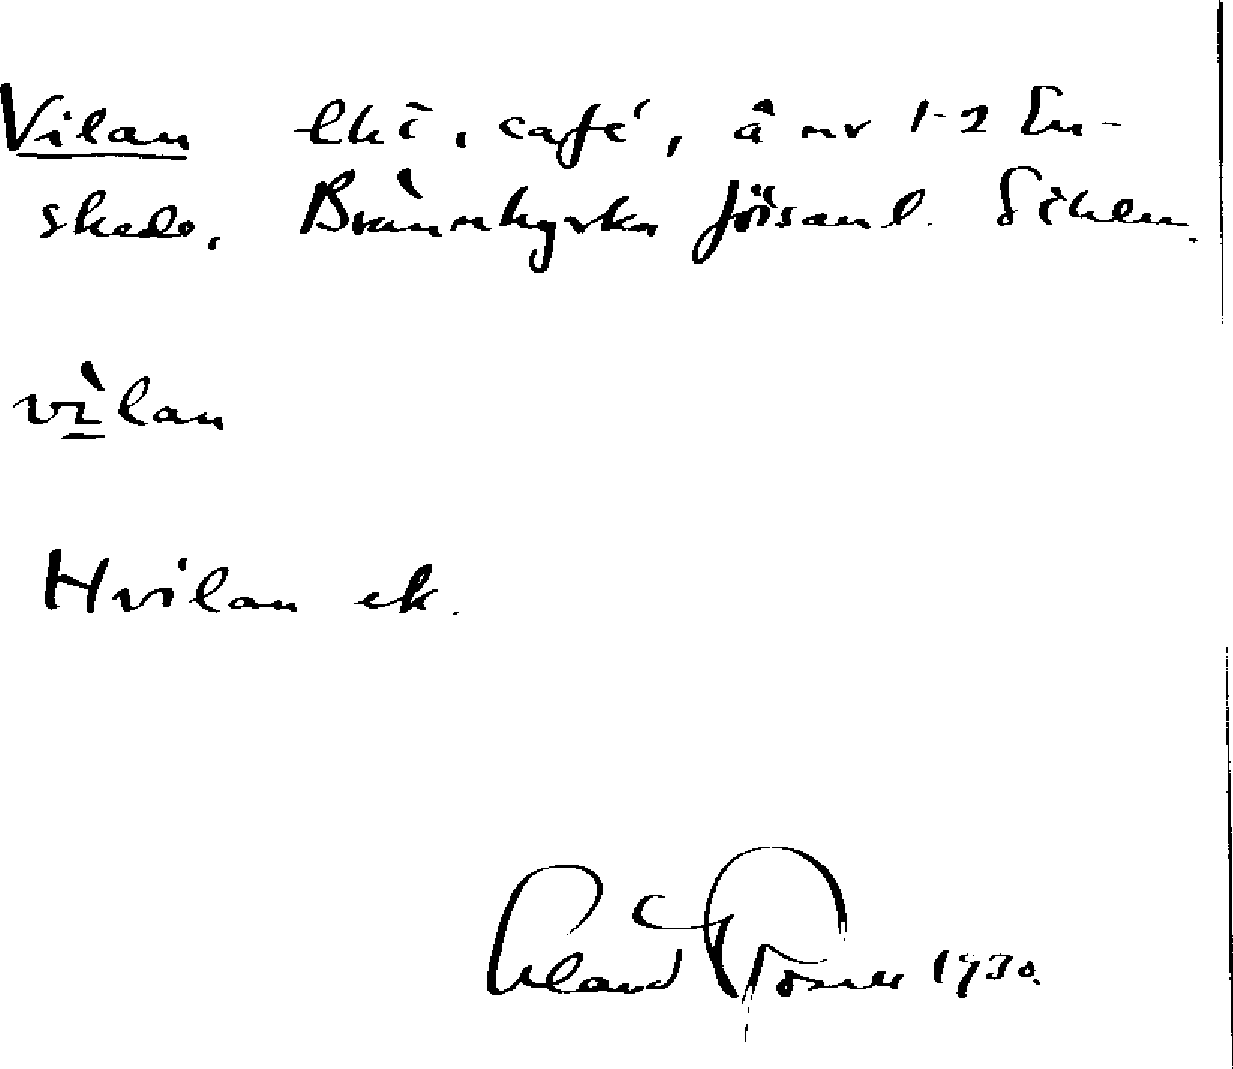 Vilan lht, café, å nr 1-2 En-
skede, Brännkyrka förs:aml. Sthlm.
vìlan
Hvilan ek.
Erland Rosell 1930.